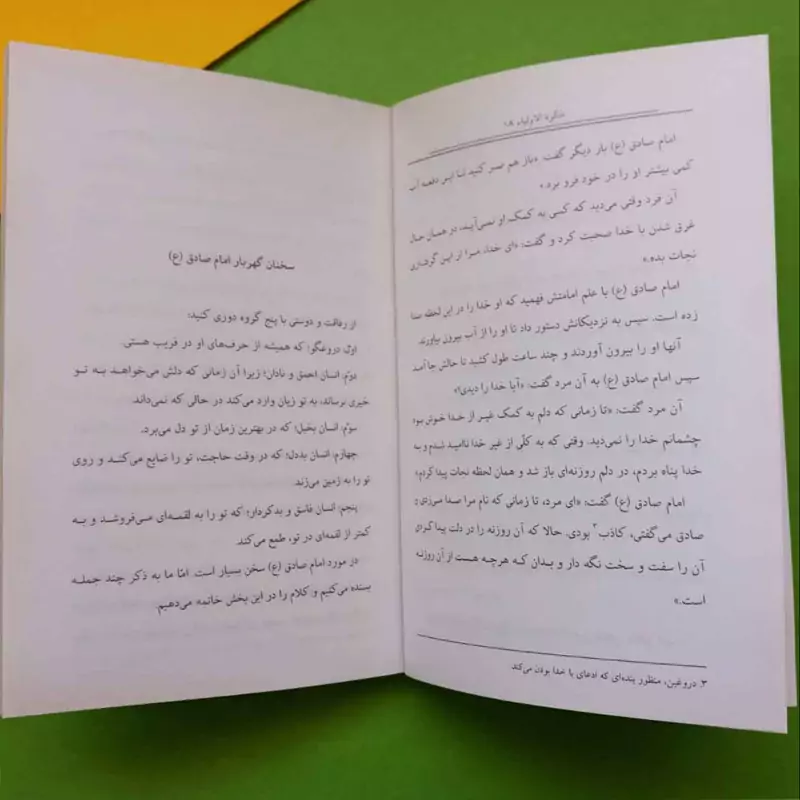 تذکرة الاولیاء ۱۸
امام صادق (ع) بار دیگر گفت: «باز هم صبر کنید تا این دفعه آب
کمی بیشتر او را در خود فرو برد.»
آن فرد وقتی می‌دید که کسی به کمک او نمی‌آید، در همان حال
غرق شدن با خدا صحبت کرد و گفت: «ای خدا، مرا از این گرفتاری
نجات بده.»
امام صادق (ع) با علم امامتش فهمید که او خدا را در این لحظه صدا
زده است. سپس به نزدیکانش دستور داد تا او را از آب بیرون بیاورند.
آنها او را بیرون آوردند و چند ساعت طول کشید تا حالش جا آمد.
سپس امام صادق (ع) به آن مرد گفت: «آیا خدا را دیدی؟»
آن مرد گفت: «تا زمانی که دلم به کمک غیر از خدا خوش بود
چشمانم خدا را نمی‌دید. وقتی که به کلّی از غیر خدا ناامید شدم و به
خدا پناه بردم، در دلم روزنه‌ای باز شد و همان لحظه نجات پیدا کردم.»
امام صادق (ع) گفت: «ای مرد، تا زمانی که نام مرا صدا می‌زدی و
صادق می‌گفتی، کاذب۳ بودی. حالا که آن روزنه را در دلت پیدا کردی
آن را سفت و سخت نگه دار و بدان که هرچه هست از آن روزنه
است.»
۳. دروغین، منظور بنده‌ای که ادعای با خدا بودن می‌کند.
سخنان گهربار امام صادق (ع)
از رفاقت و دوستی با پنج گروه دوری کنید:
اول، دروغگو؛ که همیشه از حرف‌های او در فریب هستی.
دوّم، انسان احمق و نادان؛ زیرا آن زمانی که دلش می‌خواهد به تو
خیری برساند، به تو زیان وارد می‌کند در حالی که نمی‌داند.
سوّم، انسان بخیل؛ که در بهترین زمان از تو دل می‌برد.
چهارم، انسان بددل؛ که در وقت حاجت، تو را ضایع می‌کند و روی
تو را به زمین می‌زند.
پنجم، انسان فاسق و بدکردار؛ که تو را به لقمه‌ای می‌فروشد و به
کمتر از لقمه‌ای در تو، طمع می‌کند.
در مورد امام صادق (ع) سخن بسیار است. امّا ما به ذکر چند جمله
بسنده می‌کنیم و کلام را در این بخش خاتمه می‌دهیم.